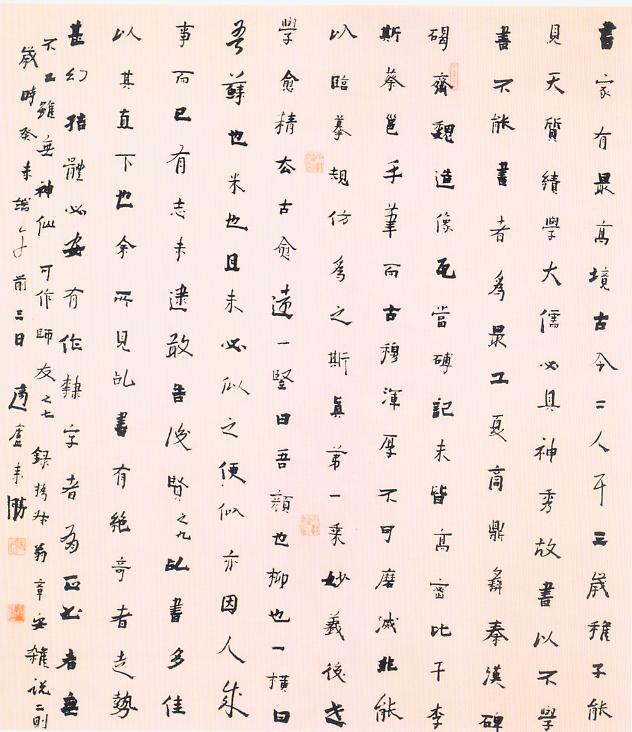 書家有最高境古今二人耳三歲稚子能
見天質績學大儒必具神秀故書以不學
書不能書者為最工夏商鼎彝秦漢碑
碣齊魏造像瓦當磚記未皆高密比干李
斯蔡邕手筆而古穆渾厚不可磨滅非能
以臨摹規仿為之斯真第一乘妙義後世
學愈精去古愈遠一豎曰吾顏也柳也一橫曰
吾蘇也米也且未必似之便似亦因人成
事而已有志未逮敢告後賢之九乩書多佳
以其直下也余所見乩書有絕奇者走勢
甚幻指體必安有作隸字者為正書者無
不工雖無神仙可作師友之七錄撝叔翁章安雜說二則
歲時癸未端午前三日